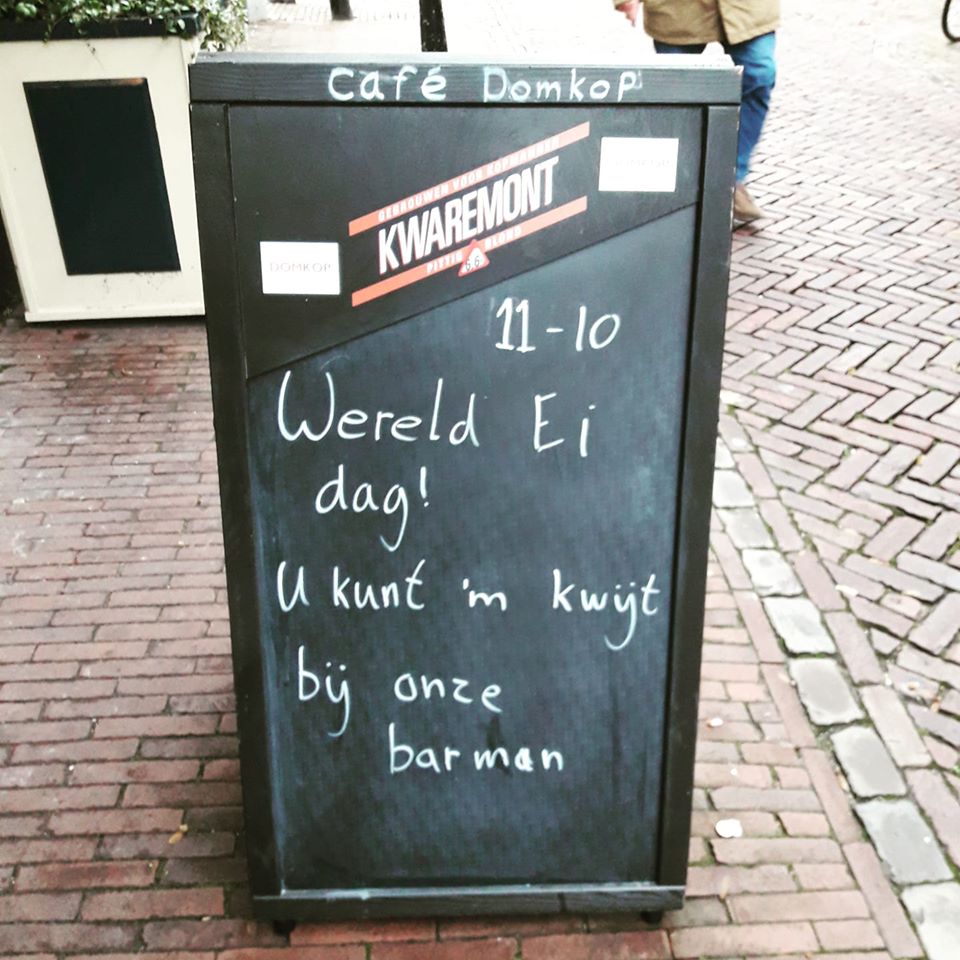 café Domkop
GEBROUWEN VOOR KOPMANNEN
KWAREMONT
PITTIG BLOND
6.6
DOMKOP
11-10
Wereld Ei
dag!
U kunt 'm kwijt
bij onze
barman